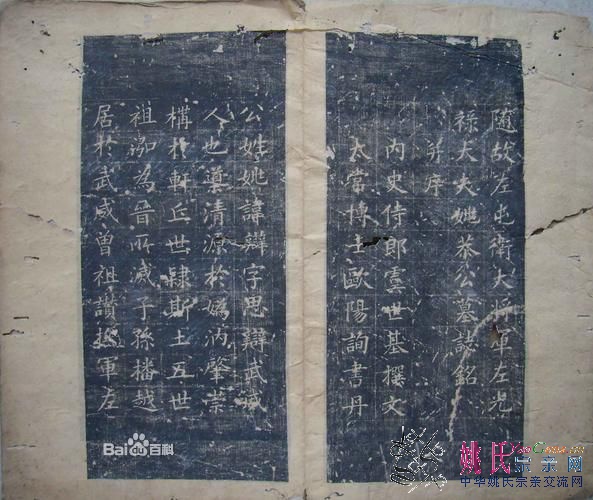 随故左屯衛大將軍左光
禄大夫姚恭公墓誌銘
并序
内史侍郎虞世基撰文
太常博士歐陽詢書丹
公姓姚諱辯字思辯武威
人也導清源於媯汭肇崇
構於軒丘世隸斯土五世
祖泓為晉所滅子孫播越
居於武威曾祖讚軍左
Bai百科
姚氏宗亲网
中华姚氏宗亲交流网